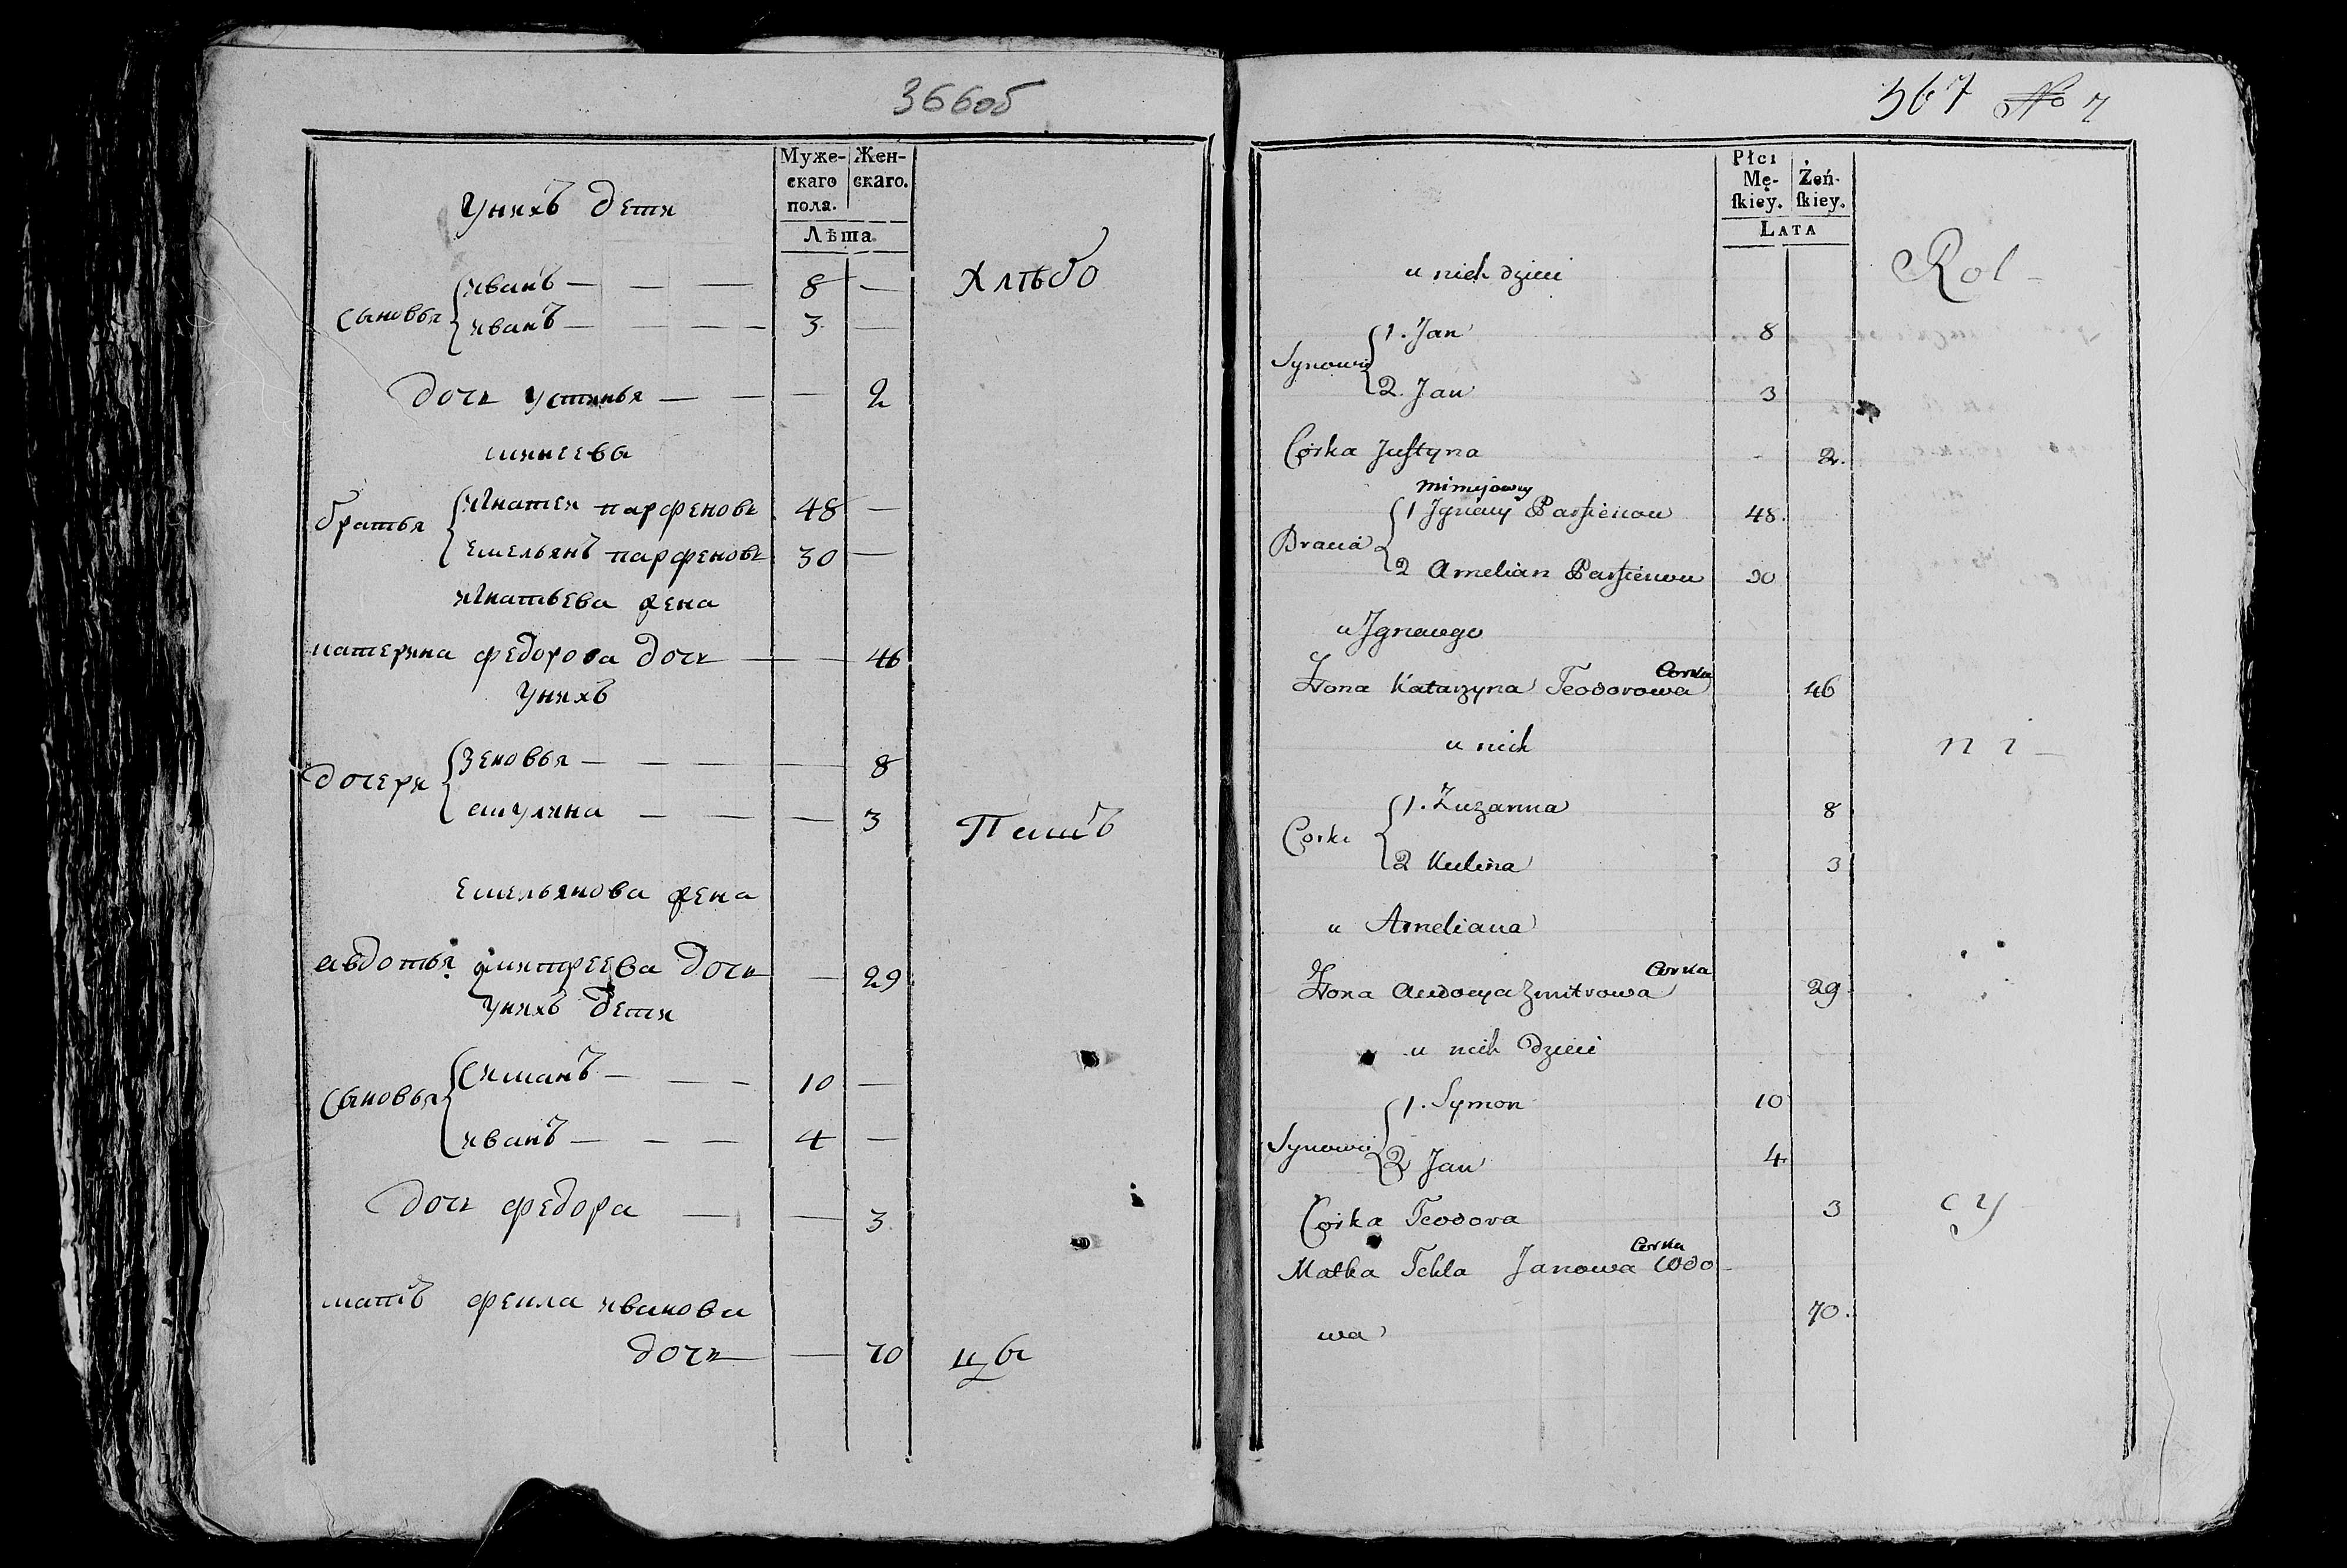 366об
Муже- Жен-
скаго скаго.
пола.
Лѣта
Унихъ дети
Сыновья
иванъ — — — 8 —
иванъ — — — — 3 —
Хлѣбо
дочь устинья — — — 2
минеева
братья
игнатеи парфеновъ 48 —
емельянъ парфеновъ 30 —
игнатьева жена
катерина федорова дочь — — 46
Унихъ
дочери
зеновья — — — — 8
акулина — — — 3
Пашъ
емельянова жена
авдотья дмитреева дочь — 29
Унихъ дети
Сыновья
Симанъ — — — 10 —
иванъ — — — 4 —
дочь федора — — 3
мать фекла иванова
дочь — 70
цы
367 No 7
Płci
Mę- Żeń-
ſkiey. ſkiey.
LATA
u nich dzieci
Rol-
Synowie
1. Jan 8
2. Jan 3
Corka Juſtyna 2.
Bracia
1 Jgnacy Parfienow 48.
2 Amelian Parfienow 30
u Jgnacego
Żona Katarzyna Teodorowa Corka 46
u nich
ni-
Corki
1. Zuzanna 8
2 Kulina 3
u Ameliana
Żona Audocya Zmitrowa Corka 29
u nich dzieci
Synowie
1. Symon 10
2 Jan 4
Corka Teodora 3
cy
Matka Tekla Janowa Corka Wdo-
wa 70.